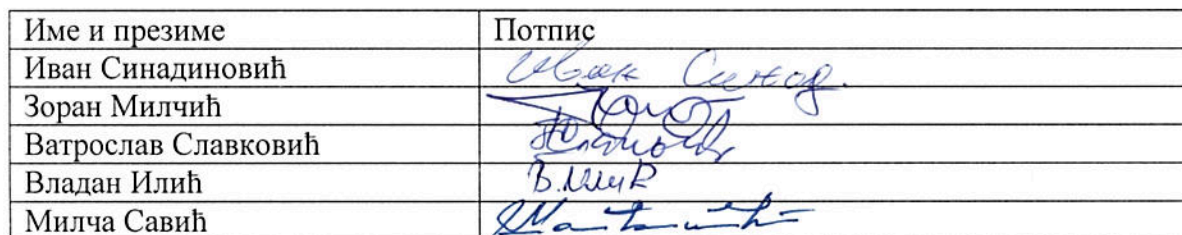 Име и презиме Потпис
Иван Синадиновић Иван Синад.
Зоран Милчић
Ватрослав Славковић
Владан Илић В. Илић
Милча Савић